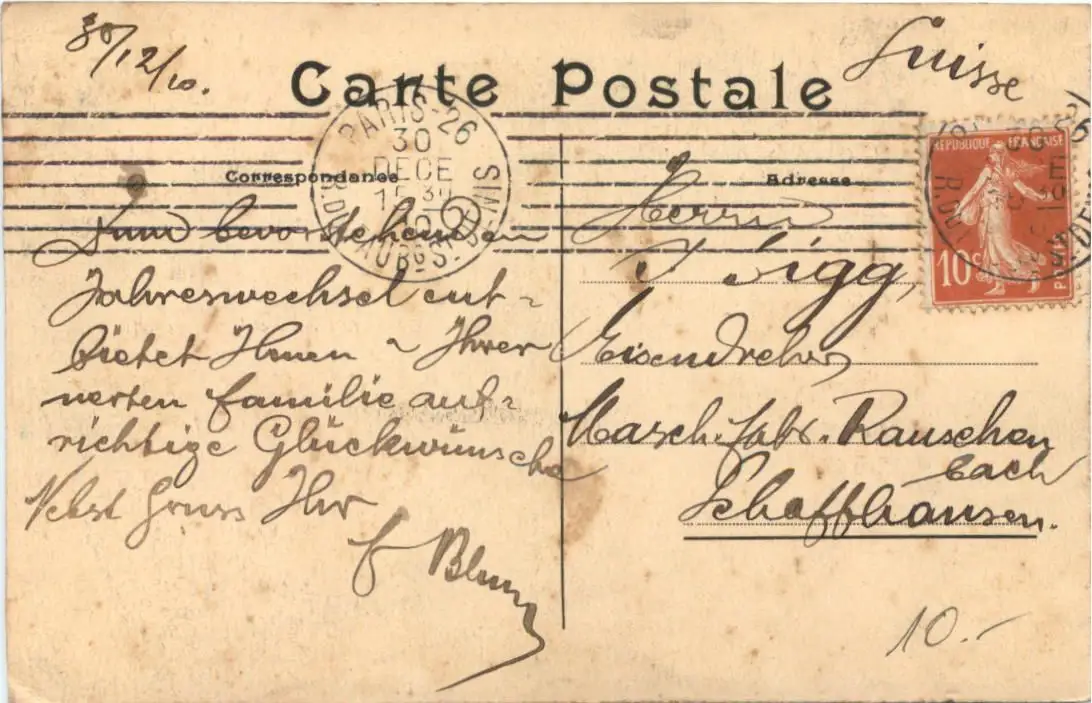 30/12/10.
Suisse
Carte Postale
PARIS-26
30
DECE
15 30
10
R. DU FAUBG ST
Correspondance
Adresse
REPUBLIQUE FRANÇAISE
10c
POSTES
Zum bevorstehenden
Jahreswechsel ent-
bietet Ihnen & Ihrer
werten Familie auf-
richtige Glückwünsche
Nebst Gruss Ihr
Blum
Herrn
J Sigg,
Eisendreher
Masch. fabr. Rauschen
bach
Schaffhausen.
10.-